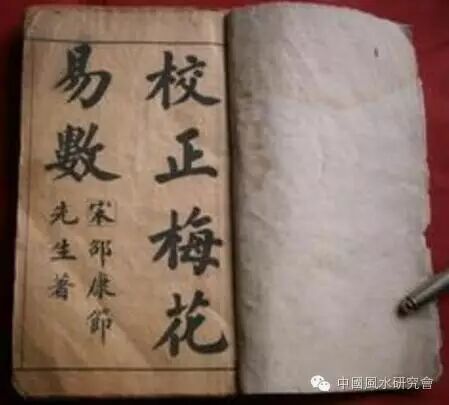 校正梅花
易數
宋邵康節
先生著
中國風水研究會